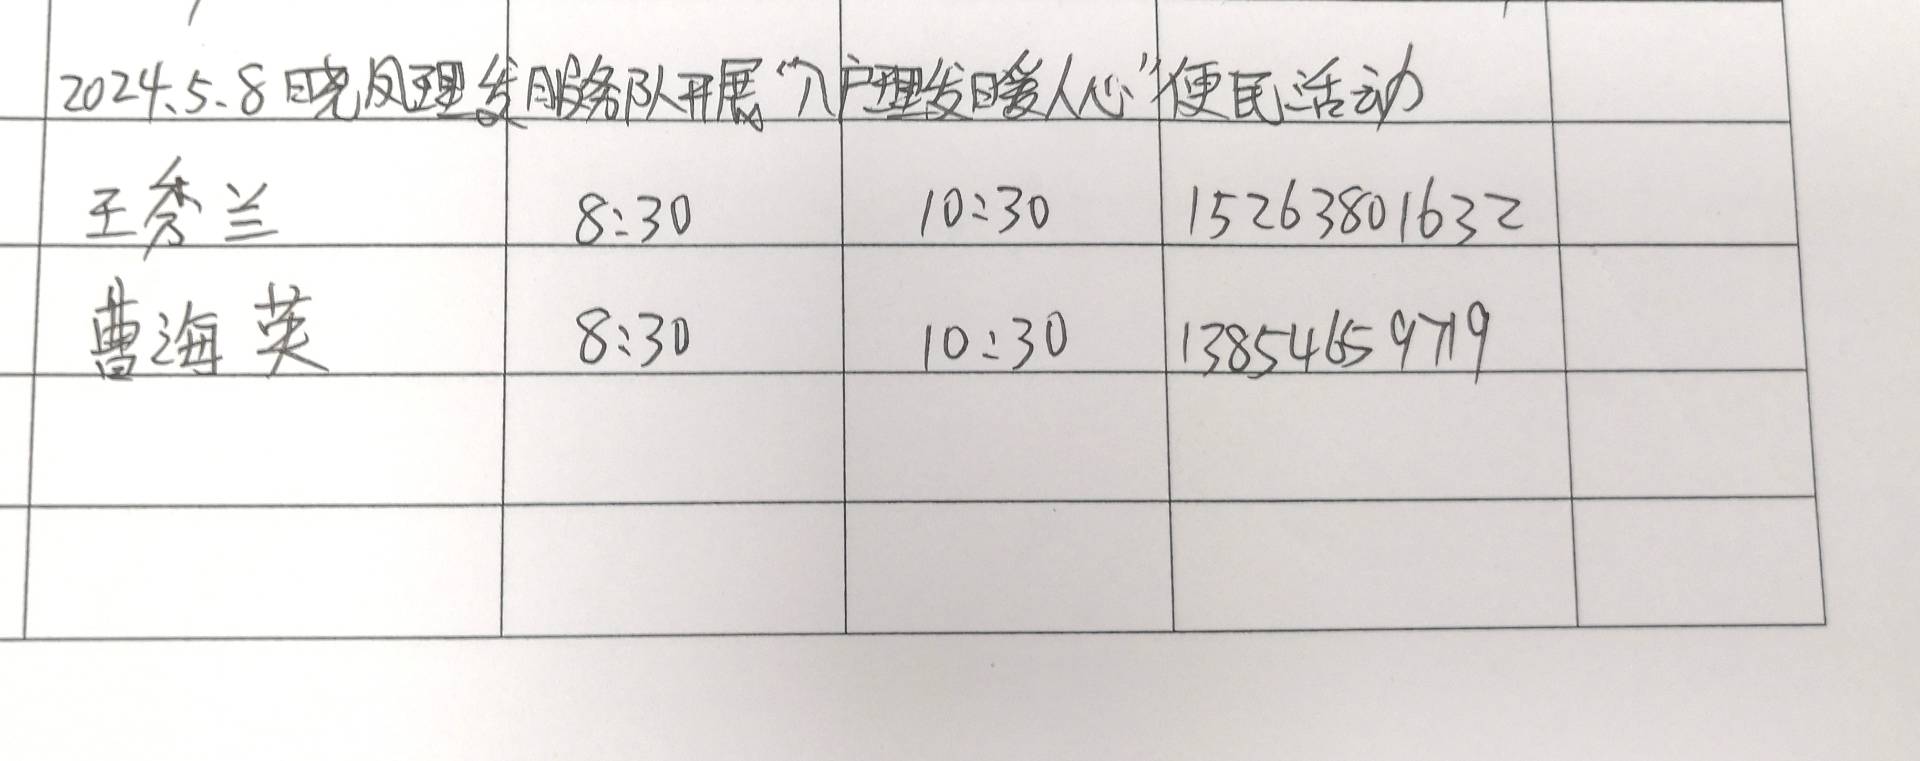 2024.5.8日晓风理发服务队开展“入户理发暖人心”便民活动
王秀兰 8:30 10:30 15263801632
曹海英 8:30 10:30 13854659719